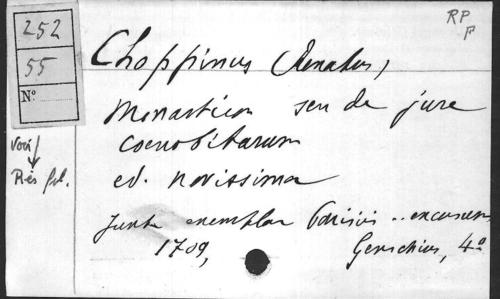 RP
F
252
55
N°
voir
Rés fol.
Choppinus (Renatus)
Monasticon seu de jure
coenobitarum
ed. novissima
Juxta exemplar Parisiis .. excusum
1709, Genschius, 4°